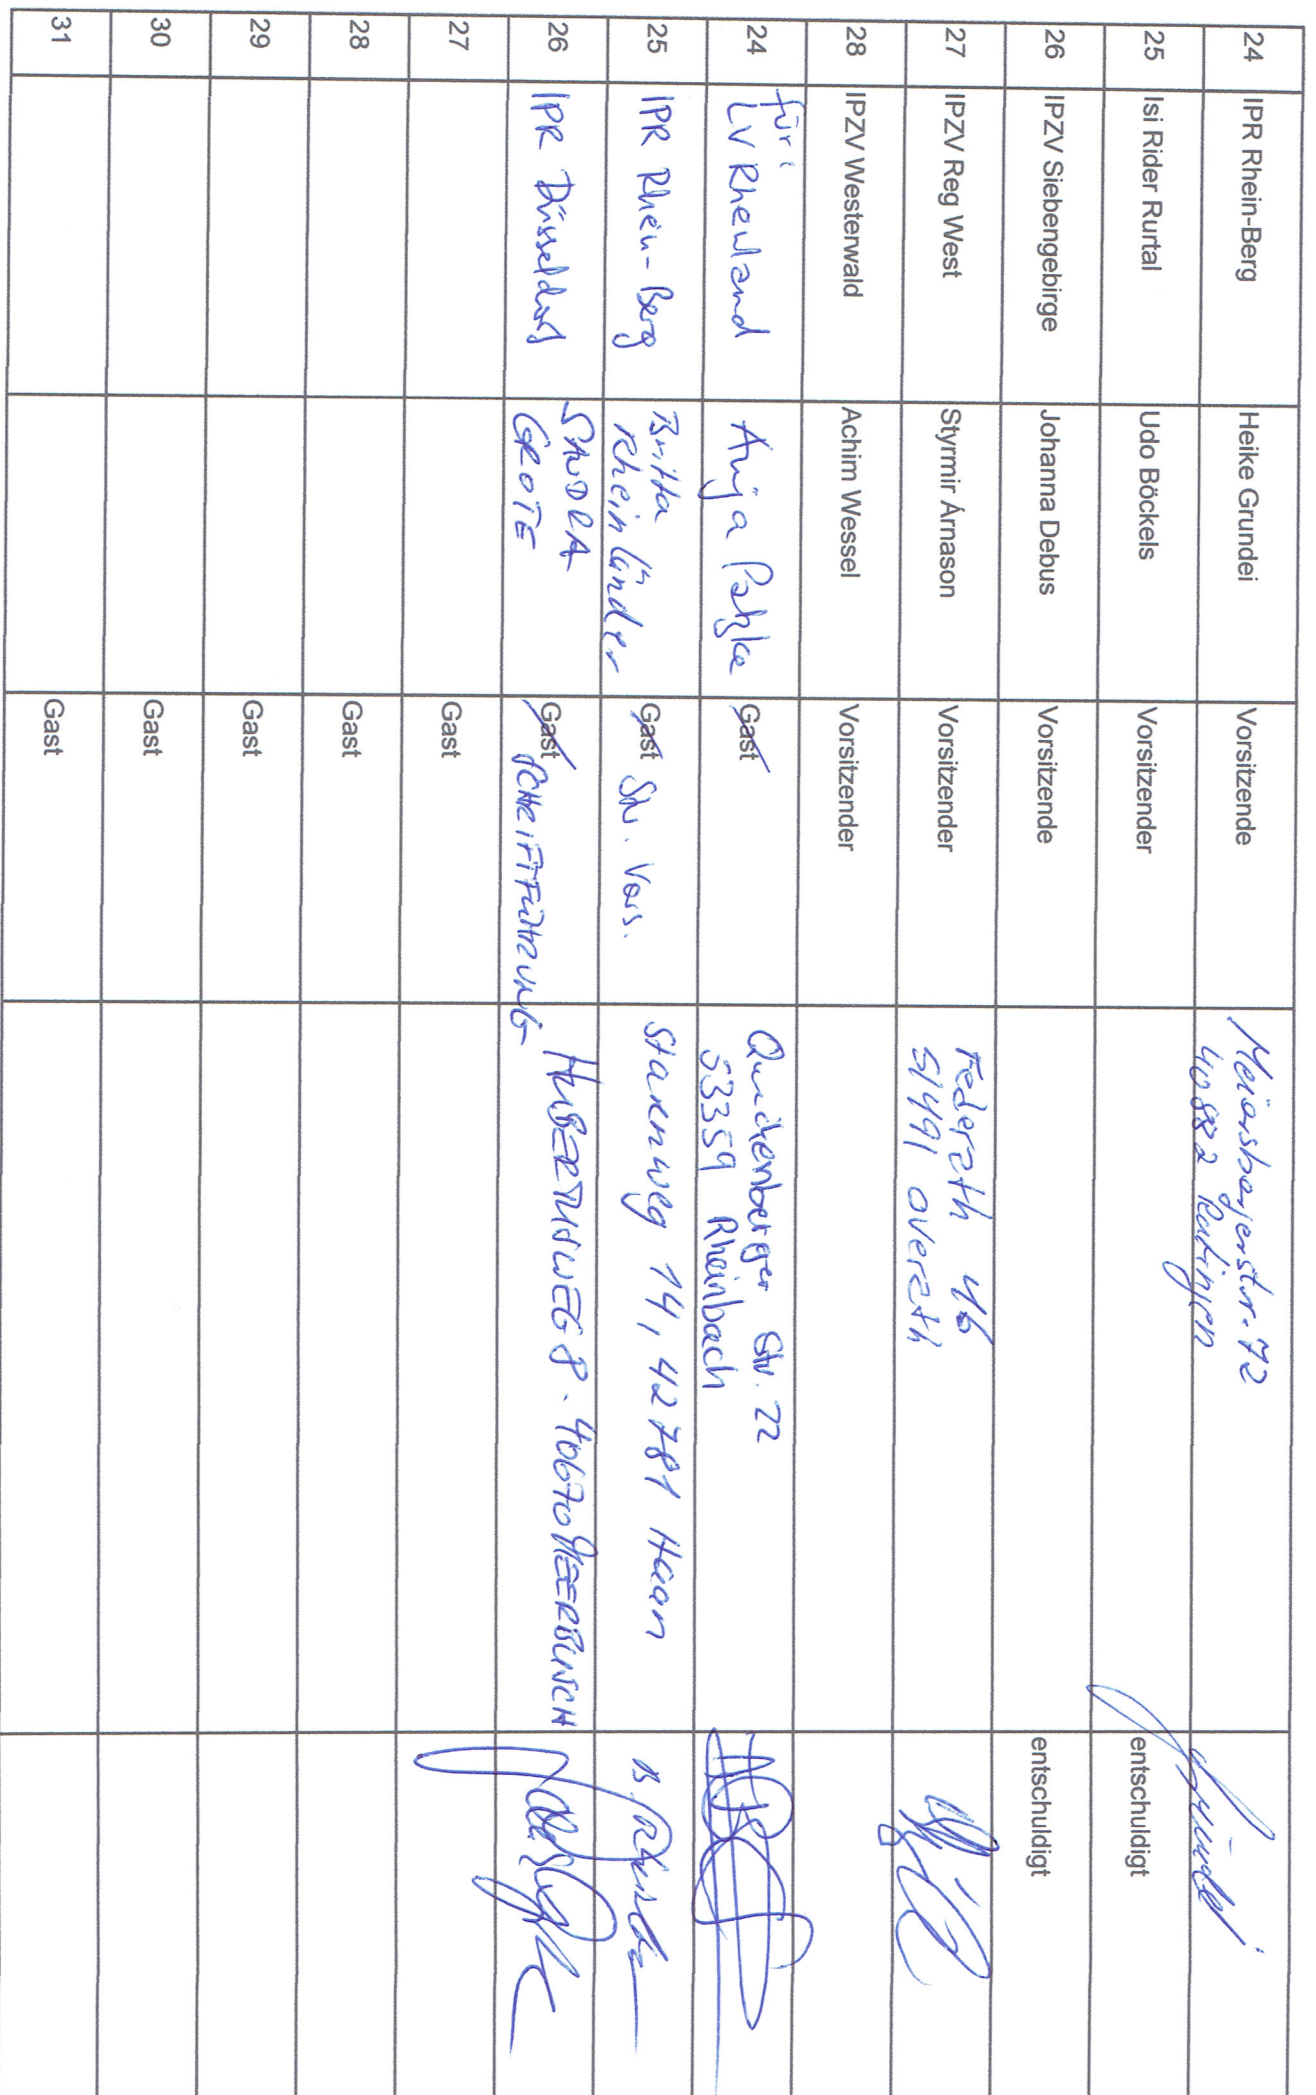 24 IPR Rhein-Berg Heike Grundei Vorsitzende Meiersbergerstr. 72
40882 Ratingen
25 Isi Rider Rurtal Udo Böckels Vorsitzender entschuldigt
26 IPZV Siebengebirge Johanna Debus Vorsitzende entschuldigt
27 IPZV Reg West Styrmir Árnason Vorsitzender Federath 46
51491 Overath
28 IPZV Westerwald Achim Wessel Vorsitzender
24 für:
LV Rheinland Anja Patzke Gast Quickenberger Str. 22
53359 Rheinbach
25 IPR Rhein-Berg Britta
Rheinländer Gast Stv. Vors. Starenweg 14, 42781 Haan
26 IPR Düsseldorf SANDRA
GROTE Gast SCHRIFTFÜHRUNG HUBERTUSWEG 8 · 40670 MEERBUSCH
27 Gast
28 Gast
29 Gast
30 Gast
31 Gast